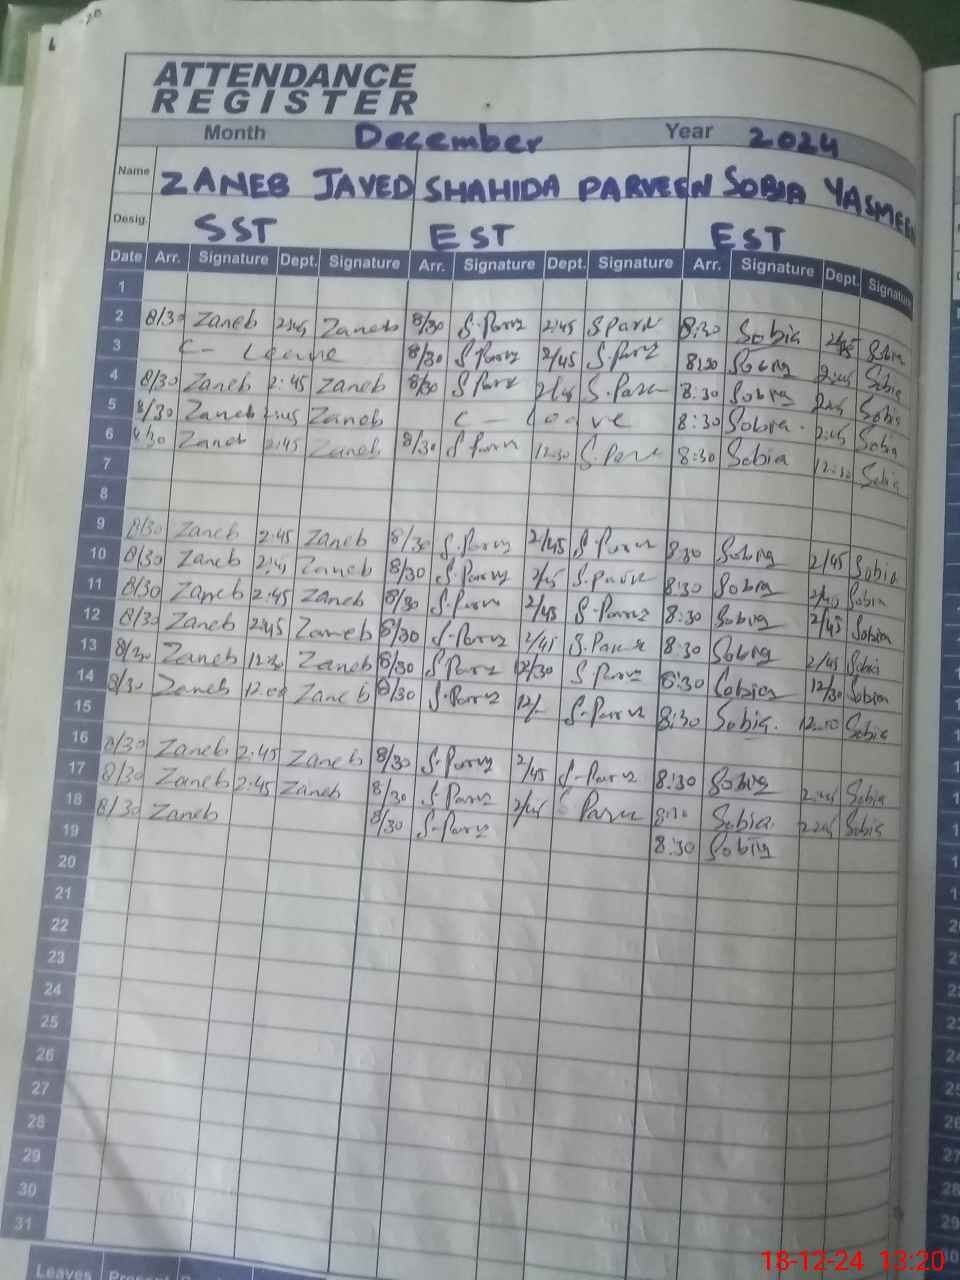 ATTENDANCE
REGISTER
Month December Year 2024
Name ZANEB JAVED SHAHIDA PARVEEN SOBIA YASMEEN
Desig. SST EST EST
Date Arr. Signature Dept. Signature Arr. Signature Dept. Signature Arr. Signature Dept. Signature
1
2 8/30 Zaneb 2:45 Zaneb 8/30 2:45 8:30 Sobia 2:45 Sobia
3 C- Leave 8/30 2/45 8:30 Sobia 2:45 Sobia
4 8/30 Zaneb 2:45 Zaneb 8/30 2/45 8:30 Sobia 2:45 Sobia
5 8/30 Zaneb 2:45 Zaneb C- Leave 8:30 Sobia 2:45 Sobia
6 8/30 Zaneb 2:45 Zaneb 8/30 12:30 8:30 Sobia 12:30 Sobia
7
8
9 8/30 Zaneb 2:45 Zaneb 8/30 2/45 8:30 Sobia 2/45 Sobia
10 8/30 Zaneb 2:45 Zaneb 8/30 2/45 8:30 Sobia Sobia
11 8/30 Zaneb 2:45 Zaneb 8/30 2/45 8:30 Sobia 2/45 Sobia
12 8/30 Zaneb 2:45 Zaneb 8/30 2/45 8:30 Sobia 2/45 Sobia
13 8/30 Zaneb 12:30 Zaneb 8/30 12/30 8:30 Sobia 12/30 Sobia
14 8/30 Zaneb 12:00 Zaneb 8/30 12/- 8:30 Sobia 12:00 Sobia
15
16 8/30 Zaneb 2:45 Zaneb 8/30 2/45 8:30 Sobia 2:45 Sobia
17 8/30 Zaneb 2:45 Zaneb 8/30 2/45 8:30 Sobia 2:45 Sobia
18 8/30 Zaneb 8/30 8:30 Sobia
19
20
21
22
23
24
25
26
27
28
29
30
31
Leaves Present
18-12-24 13:20